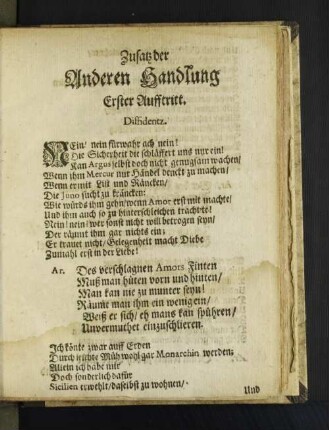 Zusatz der
Anderen Handlung
Erster Aufftritt.
Diffidentz.
NEin/ nein fürwahr ach nein!
Die Sicherheit die schläffert uns nur ein!
Kan Argus selbst doch nicht genugsam wachen/
Wenn ihm Mercur nur Händel denckt zu machen/
Wenn er mit List und Räncken/
Die Jono sucht zu kräncken:
Wie würds ihm gehn/ wenn Amor erst mit machte/
Und ihm auch so zu hinterschleichen trachtte!
Nein! nein! wer sonst nicht will betrogen seyn/
Der räumt ihm gar nichts ein;
Er trauet nicht/ Gelegenheit macht Diebe
Zumahl erst in der Liebe!
Ar. Des verschlagnen Amors Finten
Muß man hüten vorn und hinten/
Man kan nie zu munter seyn!
Räume man ihm ein wenig ein/
Weiß er sich/ eh mans kan spühren/
Unvermuthet einzuschlieren.
Ich könte zwar auff Erden
Durch Müh wohl gar Monarchin werden;
Allein ich habe mir
Doch sonderlich dafür
Sicilien erwehlt/ daselbst zu wohnen/
Und